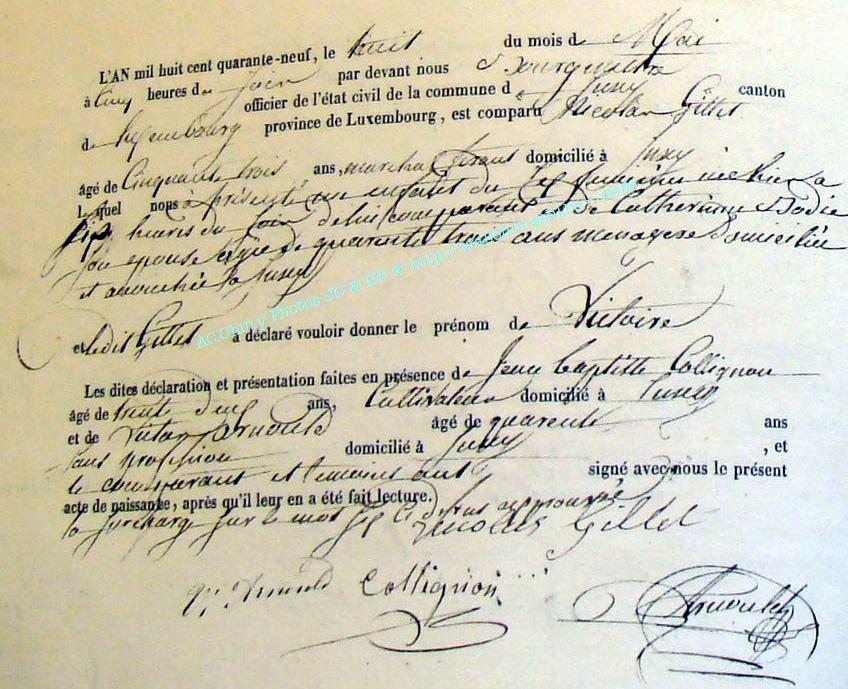 L'AN mil huit cent quarante-neuf, le huit du mois de Mai
à cinq heures du soir par devant nous
officier de l'état civil de la commune d canton
de province de Luxembourg, est comparu Nicolas Gillet
âgé de Cinquante trois ans, domicilié à
Lequel nous a présenté un enfant du sexe féminin né hier a
heures du soir de lui comparant et de Catherine
son épouse agée de quarante trois ans menagere domiciliée
et accouchée à
et ledit Gillet a déclaré vouloir donner le prénom de Victoire
Les dites déclaration et présentation faites en présence de Jean Baptiste Collignon
âgé de trente deux ans, Cultivateur domicilié à
et de Victor Arnould âgé de quarente ans
sans profession domicilié à , et
le comparant et temoins ont signé avec nous le présent
acte de naissance, après qu'il leur en a été fait lecture.
la surcharge sur le mot ci dessus approuvée
Nicolas Gillet
V. Arnould Collignon
AC Chiny Photos JC & HB ©